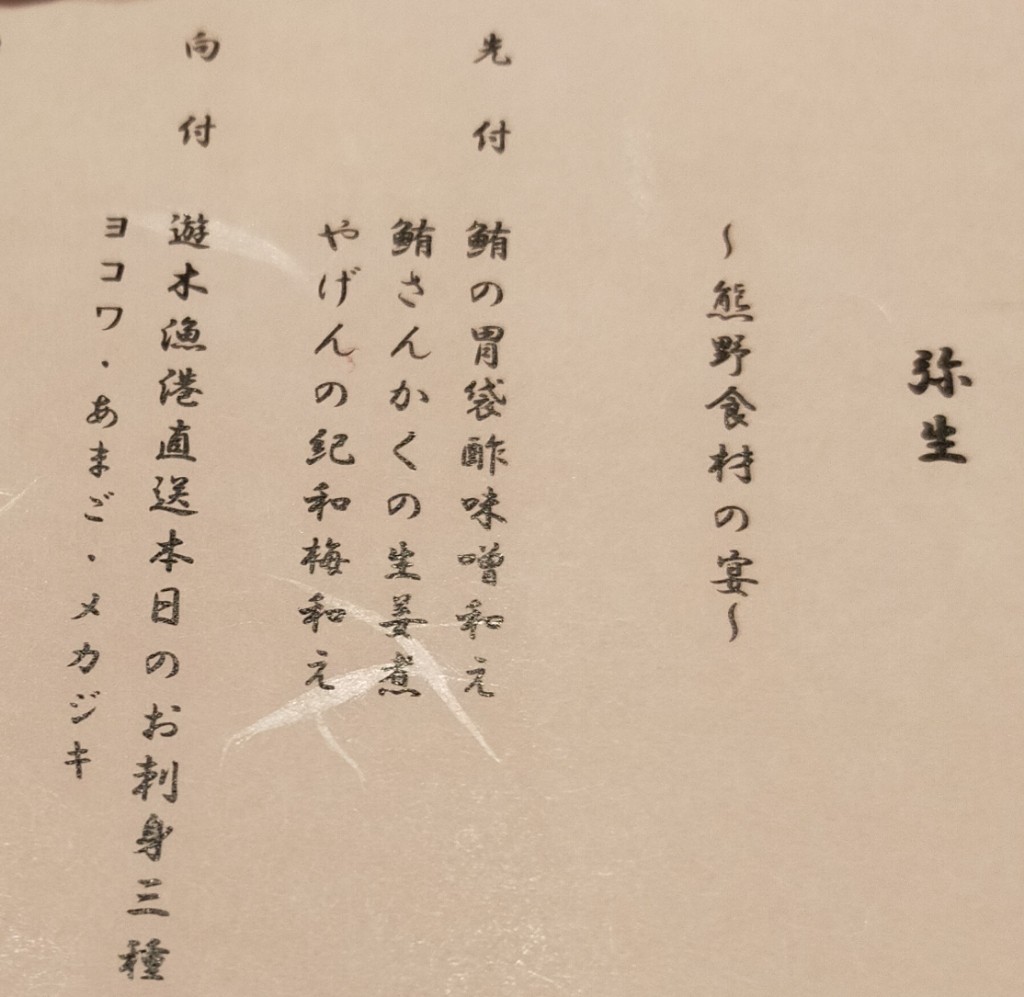 弥生
～熊野食材の宴～
先付 鮪の胃袋酢味噌和え
鮪さんかくの生姜煮
やげんの紀和梅和え
向付 遊木漁港直送本日のお刺身三種
ヨコワ・あまご・メカジキ